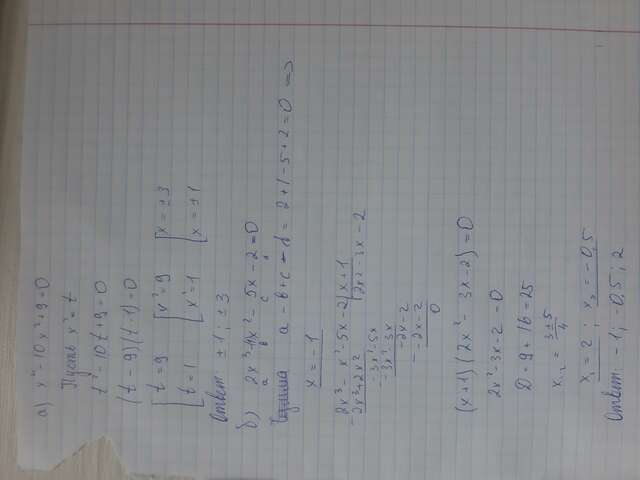 а) x⁴ - 10x² + 9 = 0
Пусть x² = t
t² - 10t + 9 = 0
(t - 9)(t - 1) = 0
[t = 9 [x² = 9 [x = ±3
[t = 1 [x² = 1 [x = ±1
Ответ ±1; ±3
б) 2x³ - 1x² - 5x - 2 = 0
a b c d
a - b + c - d = 2 + 1 - 5 + 2 = 0 =>
x = -1
2x³ - x² - 5x - 2 | x + 1
- 2x³ + 2x² | 2x² - 3x - 2
-3x² - 5x
- -3x² - 3x
-2x - 2
- -2x - 2
0
(x + 1)(2x² - 3x - 2) = 0
2x² - 3x - 2 = 0
D = 9 + 16 = 25
x₁,₂ = (3 ± 5)/4
x₁ = 2; x₂ = -0,5
Ответ -1; -0,5; 2